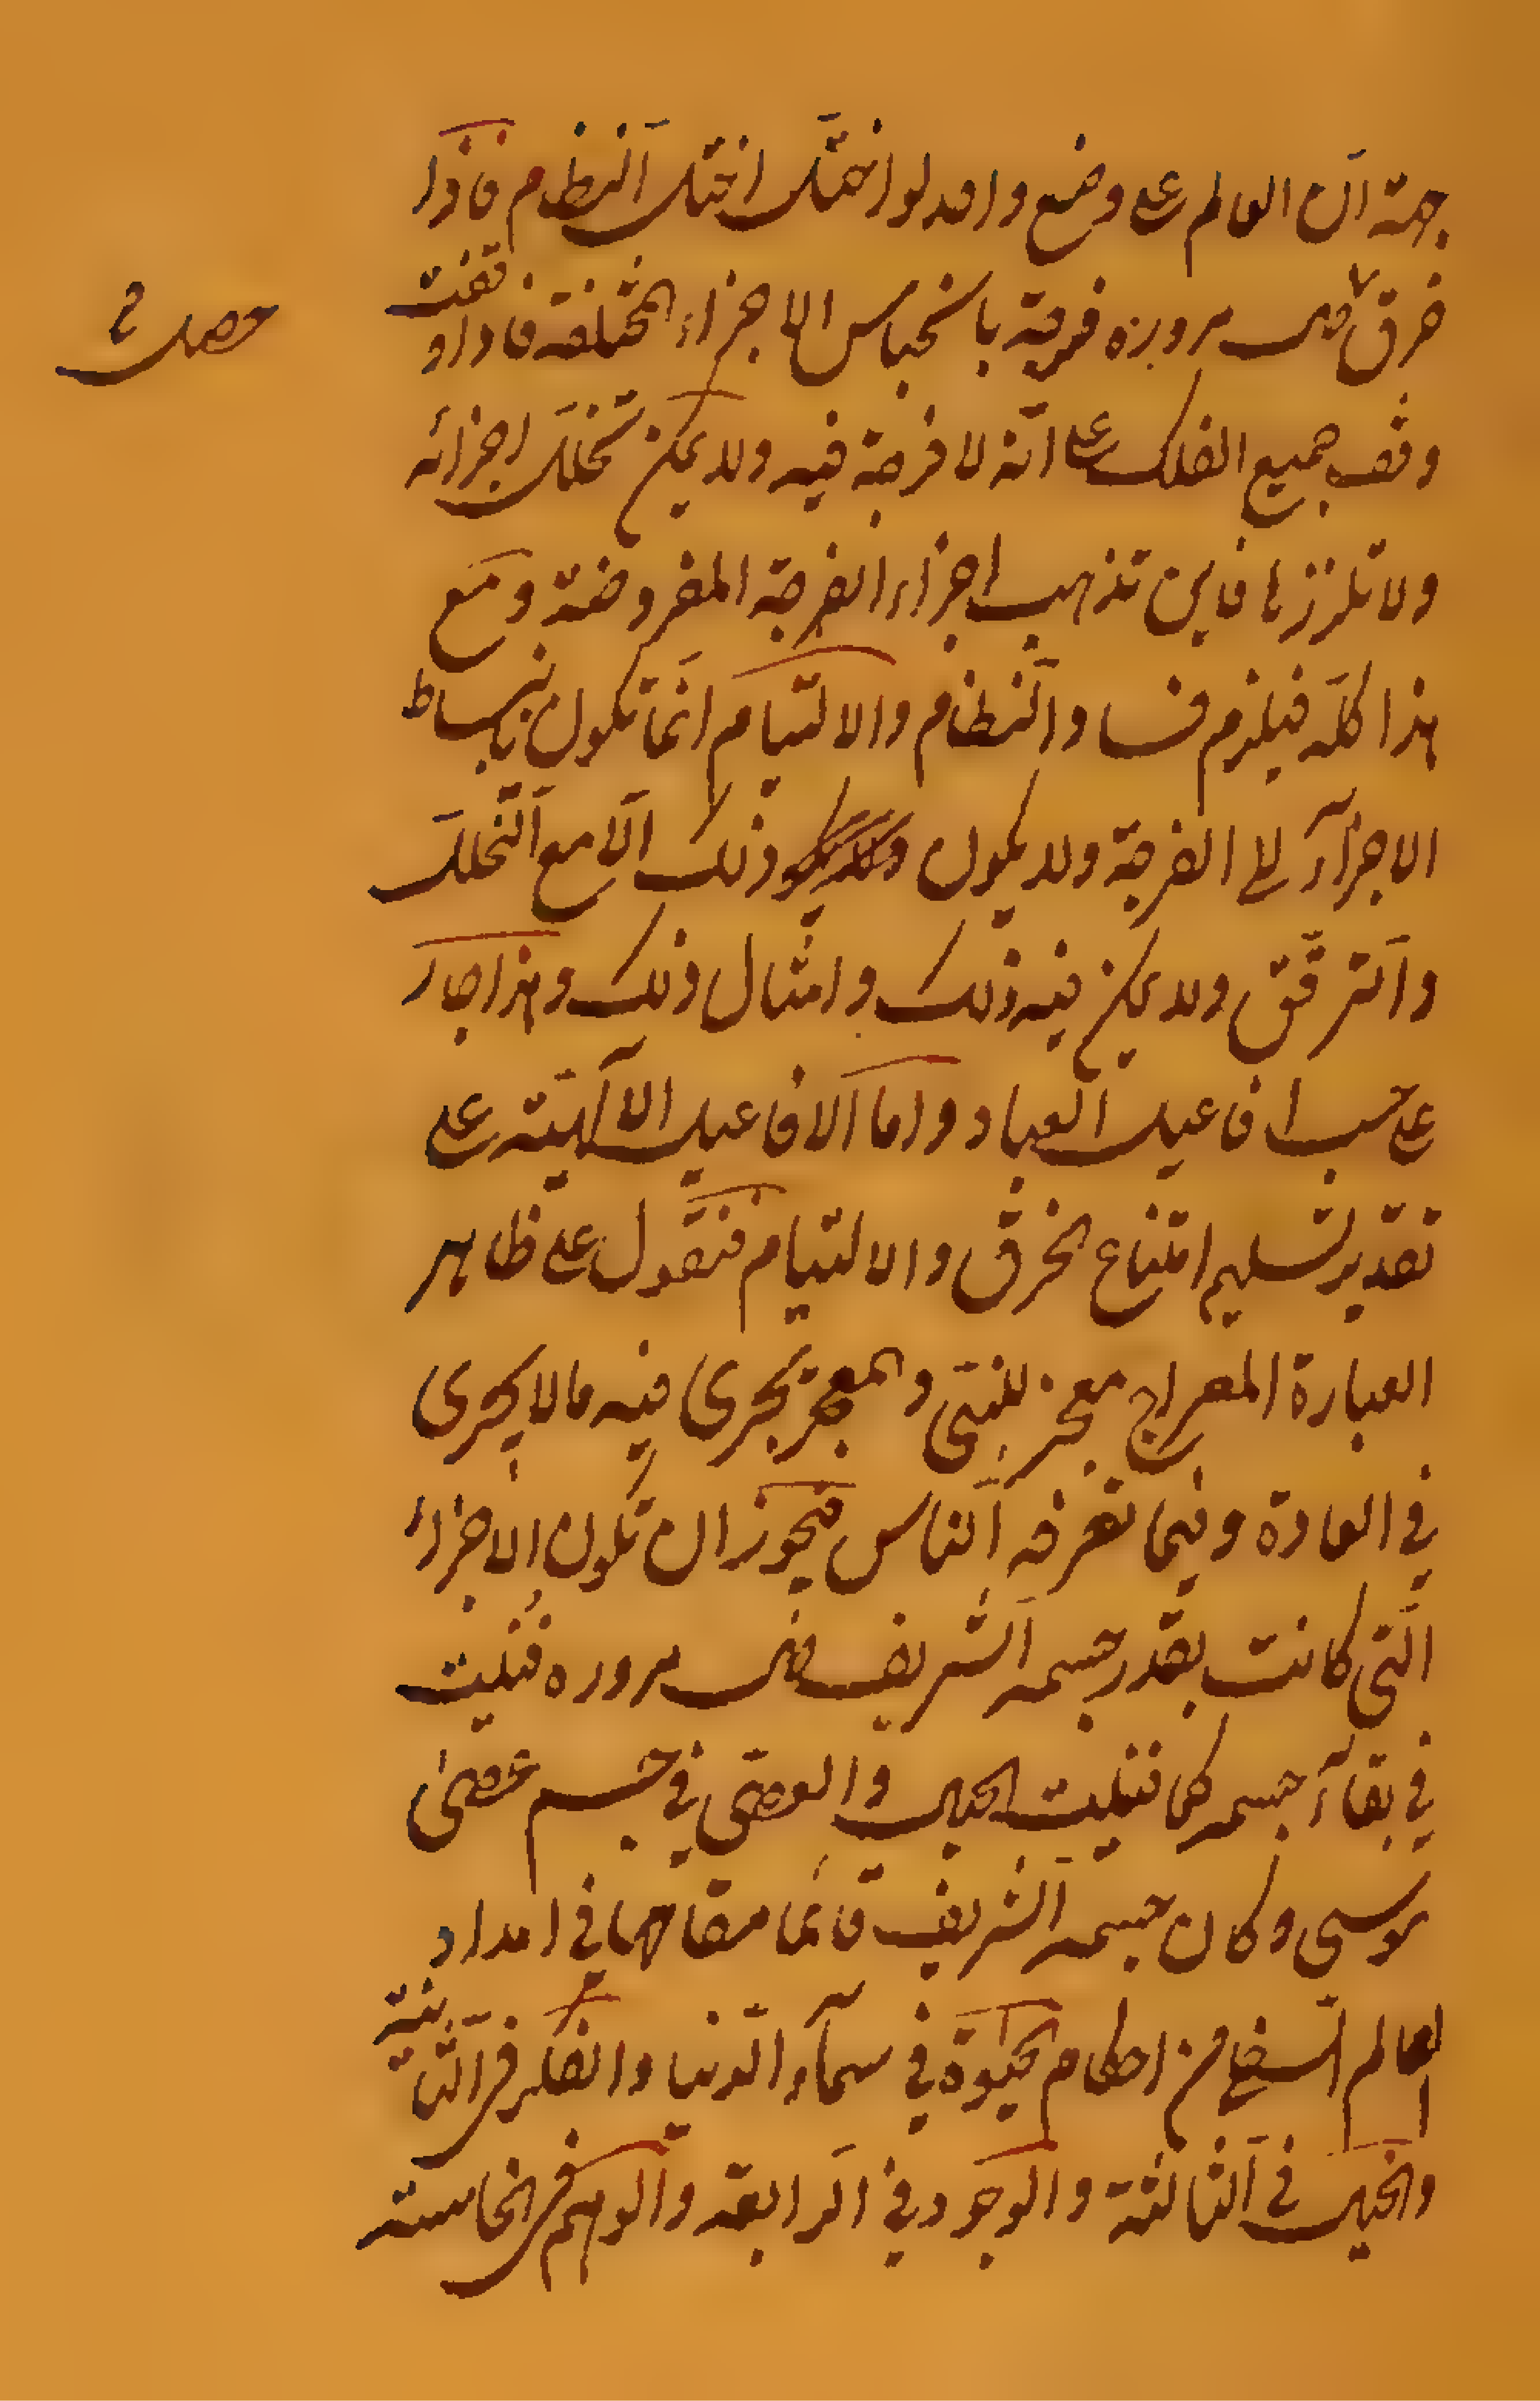 جهة انّ العالم على وضع واحد لو اختلّ اختلّ النّظام فاذا
خرق حصل مروره فرجة بانحباس الاجزاء المختلفة فاذا وقفت
وقف جميع الفلك على انّه لا فرجة فيه ولا يمكن تخلّل اجزائه
ولا تلزّزها فاين تذهب اجزاء الفرجة المفروضة ومع
هذا كلّه فيلزم فساد النّظام والالتيام انّما تكون بانبساط
الاجزآء الى الفرجة ولا يكون ذلك الّا مع التّخلّل
والتّرقّق ولا يمكن فيه ذلك وامثال ذلك وهذا جار
على حسب افاعيل العباد واما الافاعيل الالٓهيّة على
تقدير تسليم امتناع الخرق والالتيام فنقول على ظاهر
العبارة المعراج معجز للنبيّ والمعجز تجرى فيه ما لا يجرى
في العادة وفيما تعرفه النّاس فيجوز ان تكون الاجزاء
الّتى كانت بقدر جسمه الشّريف حين مروره فنيت
في بقآء جسمه كما فنيت الحبال والعصى في جسم عصى
موسى وكان جسمه الشّريف قائما مقامها في امداد
العالم السّفلى من احكام الحيوة في سمآء الدّنيا والفكر في الثّانية
والخيال في الثّالثة والوجود في الرّابعة والوهم في الخامسة
حصل